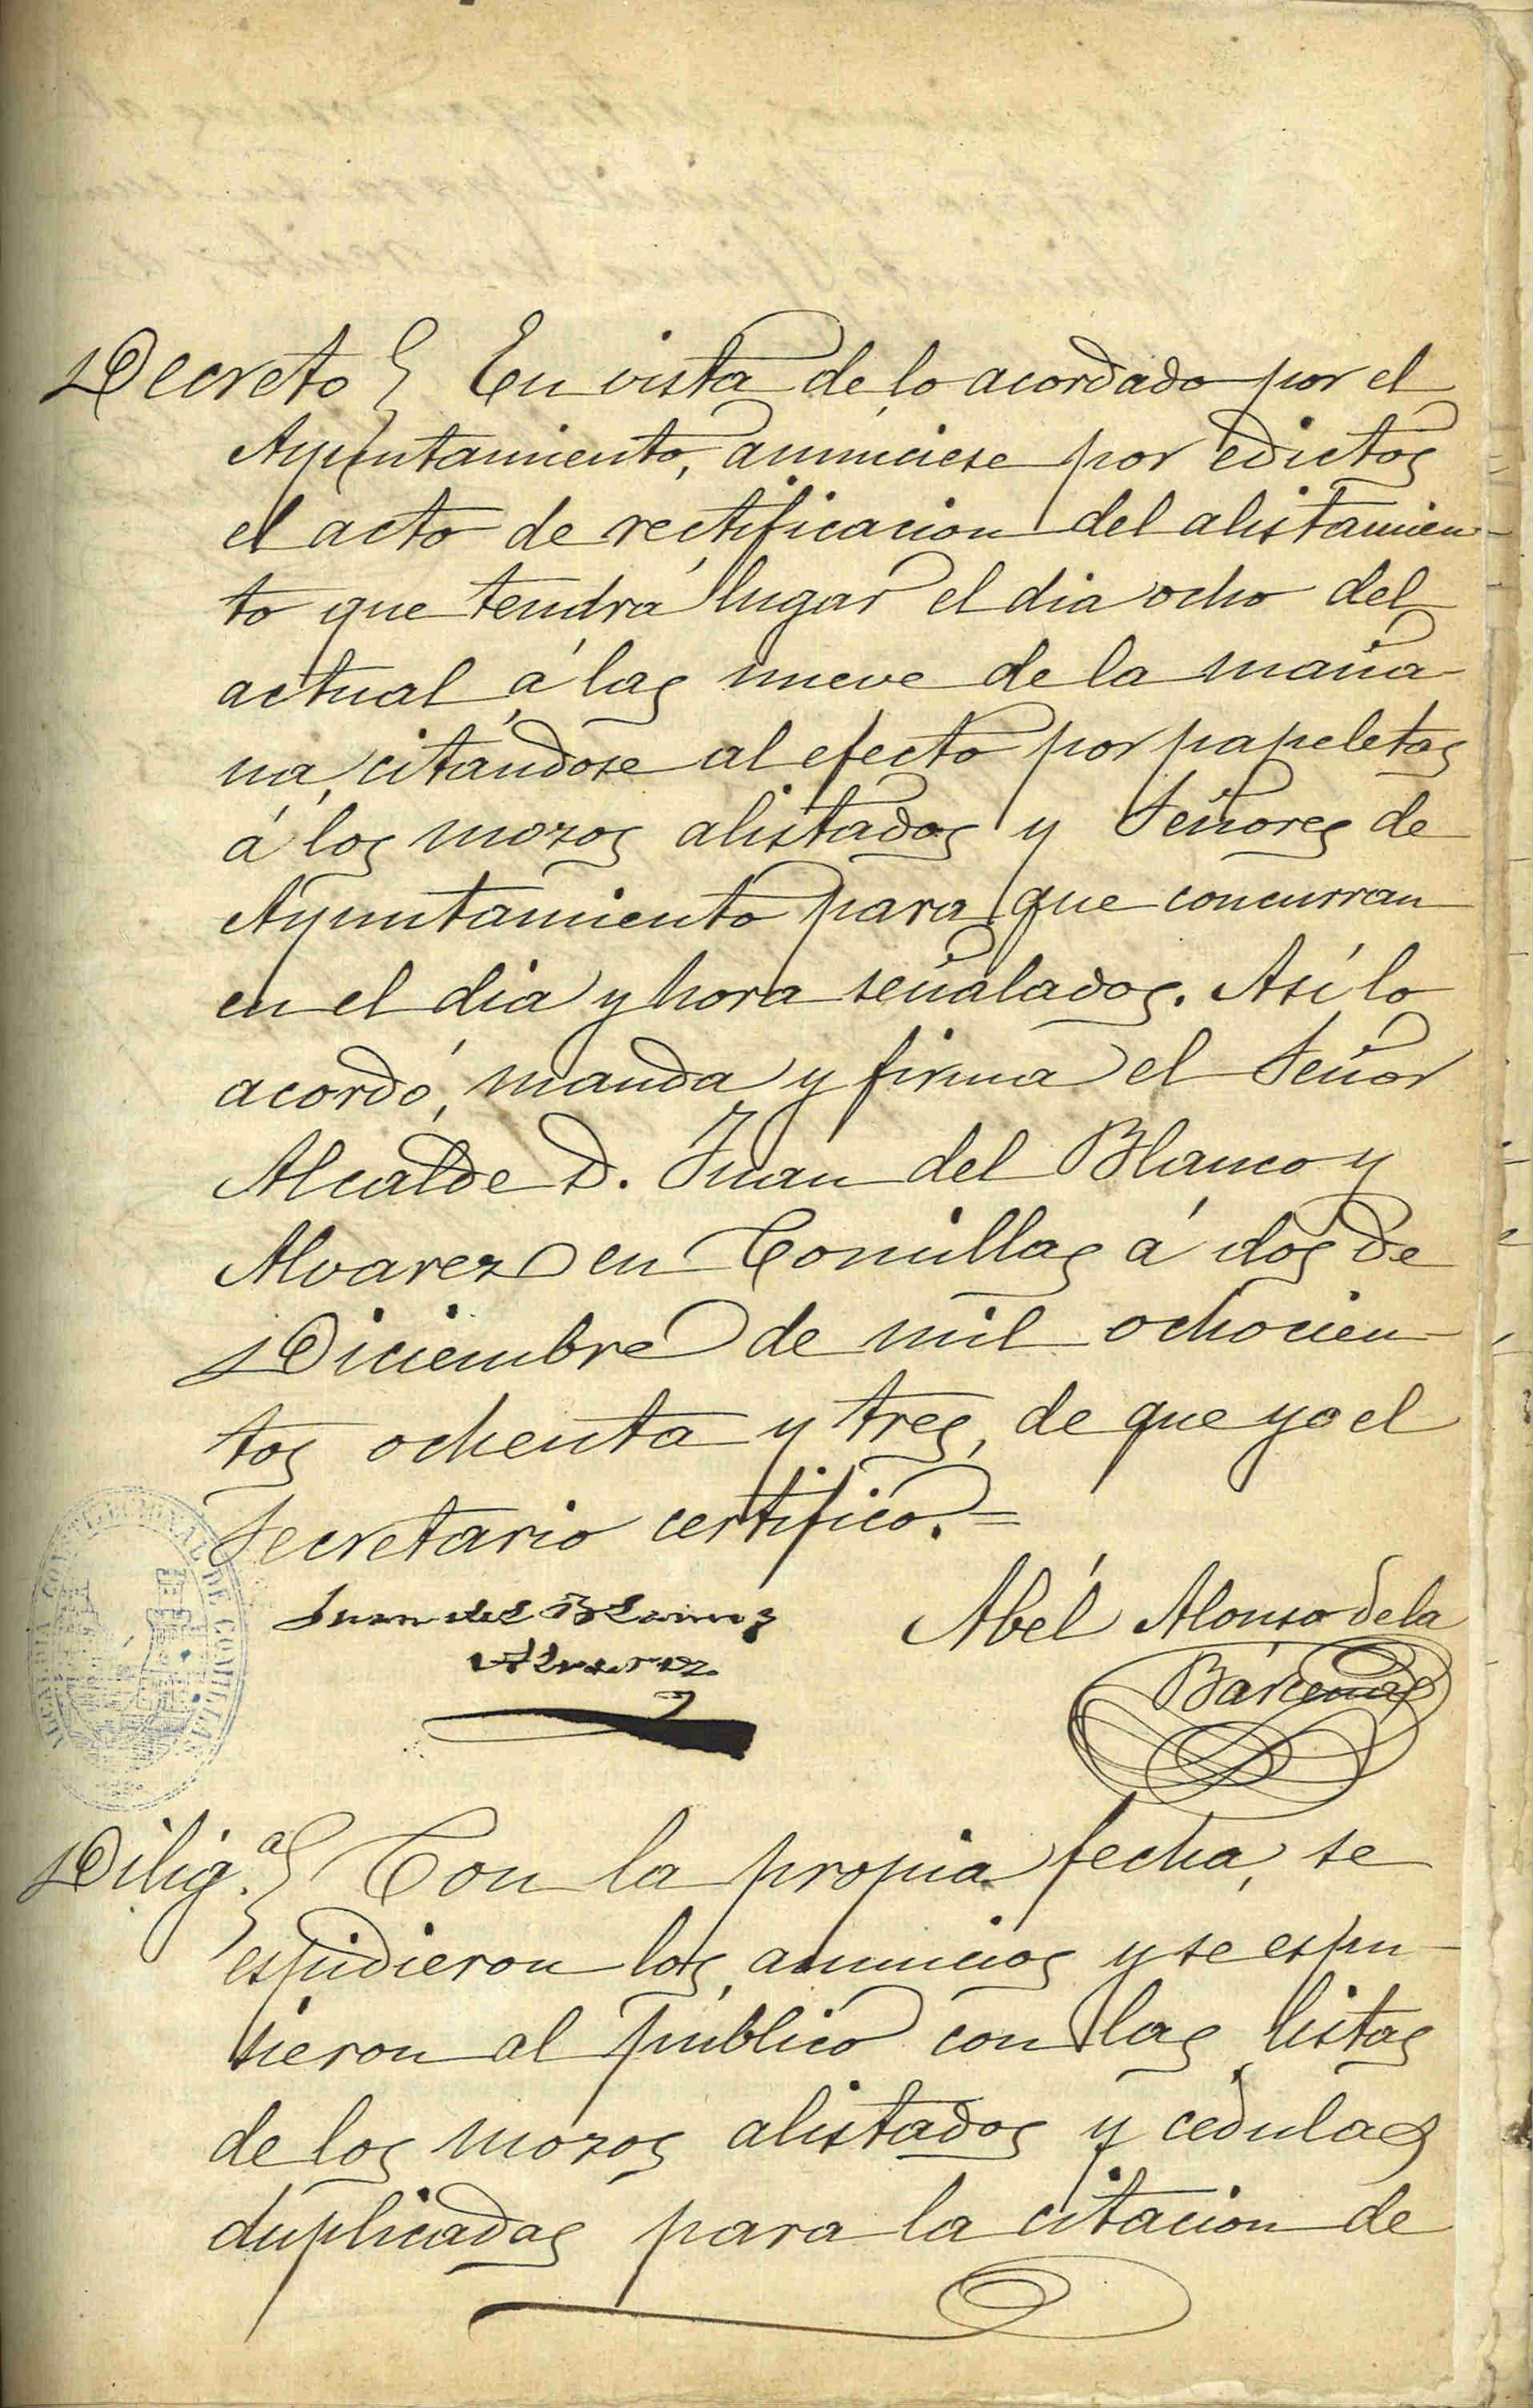 Decreto} En vista de lo acordado por el
Ayuntamiento, anúnciese por edictos
el acto de rectificacion del alistamien-
to que tendrá lugar el dia ocho del
actual á las nueve de la maña-
na, citándose al efecto por papeletas
á los mozos alistados y Señores de
Ayuntamiento para que concurran
en el dia y hora señalados. Así lo
acordó, manda y firma el Señor
Alcalde D. Juan del Blanco y
Alvarez en Comillas á dos de
Diciembre de mil ochocien-
tos ochenta y tres, de que yo el
Secretario certifico.=
Juan del Blanco y
Alvarez
Abél Alonso de la
Bárcena
ALCALDIA CONSTITUCIONAL DE COMILLAS
Dilig.a} Con la propia fecha, se
espidieron los anuncios y se espu-
sieron al público con las listas
de los mozos alistados y cedulas
duplicadas para la citacion de